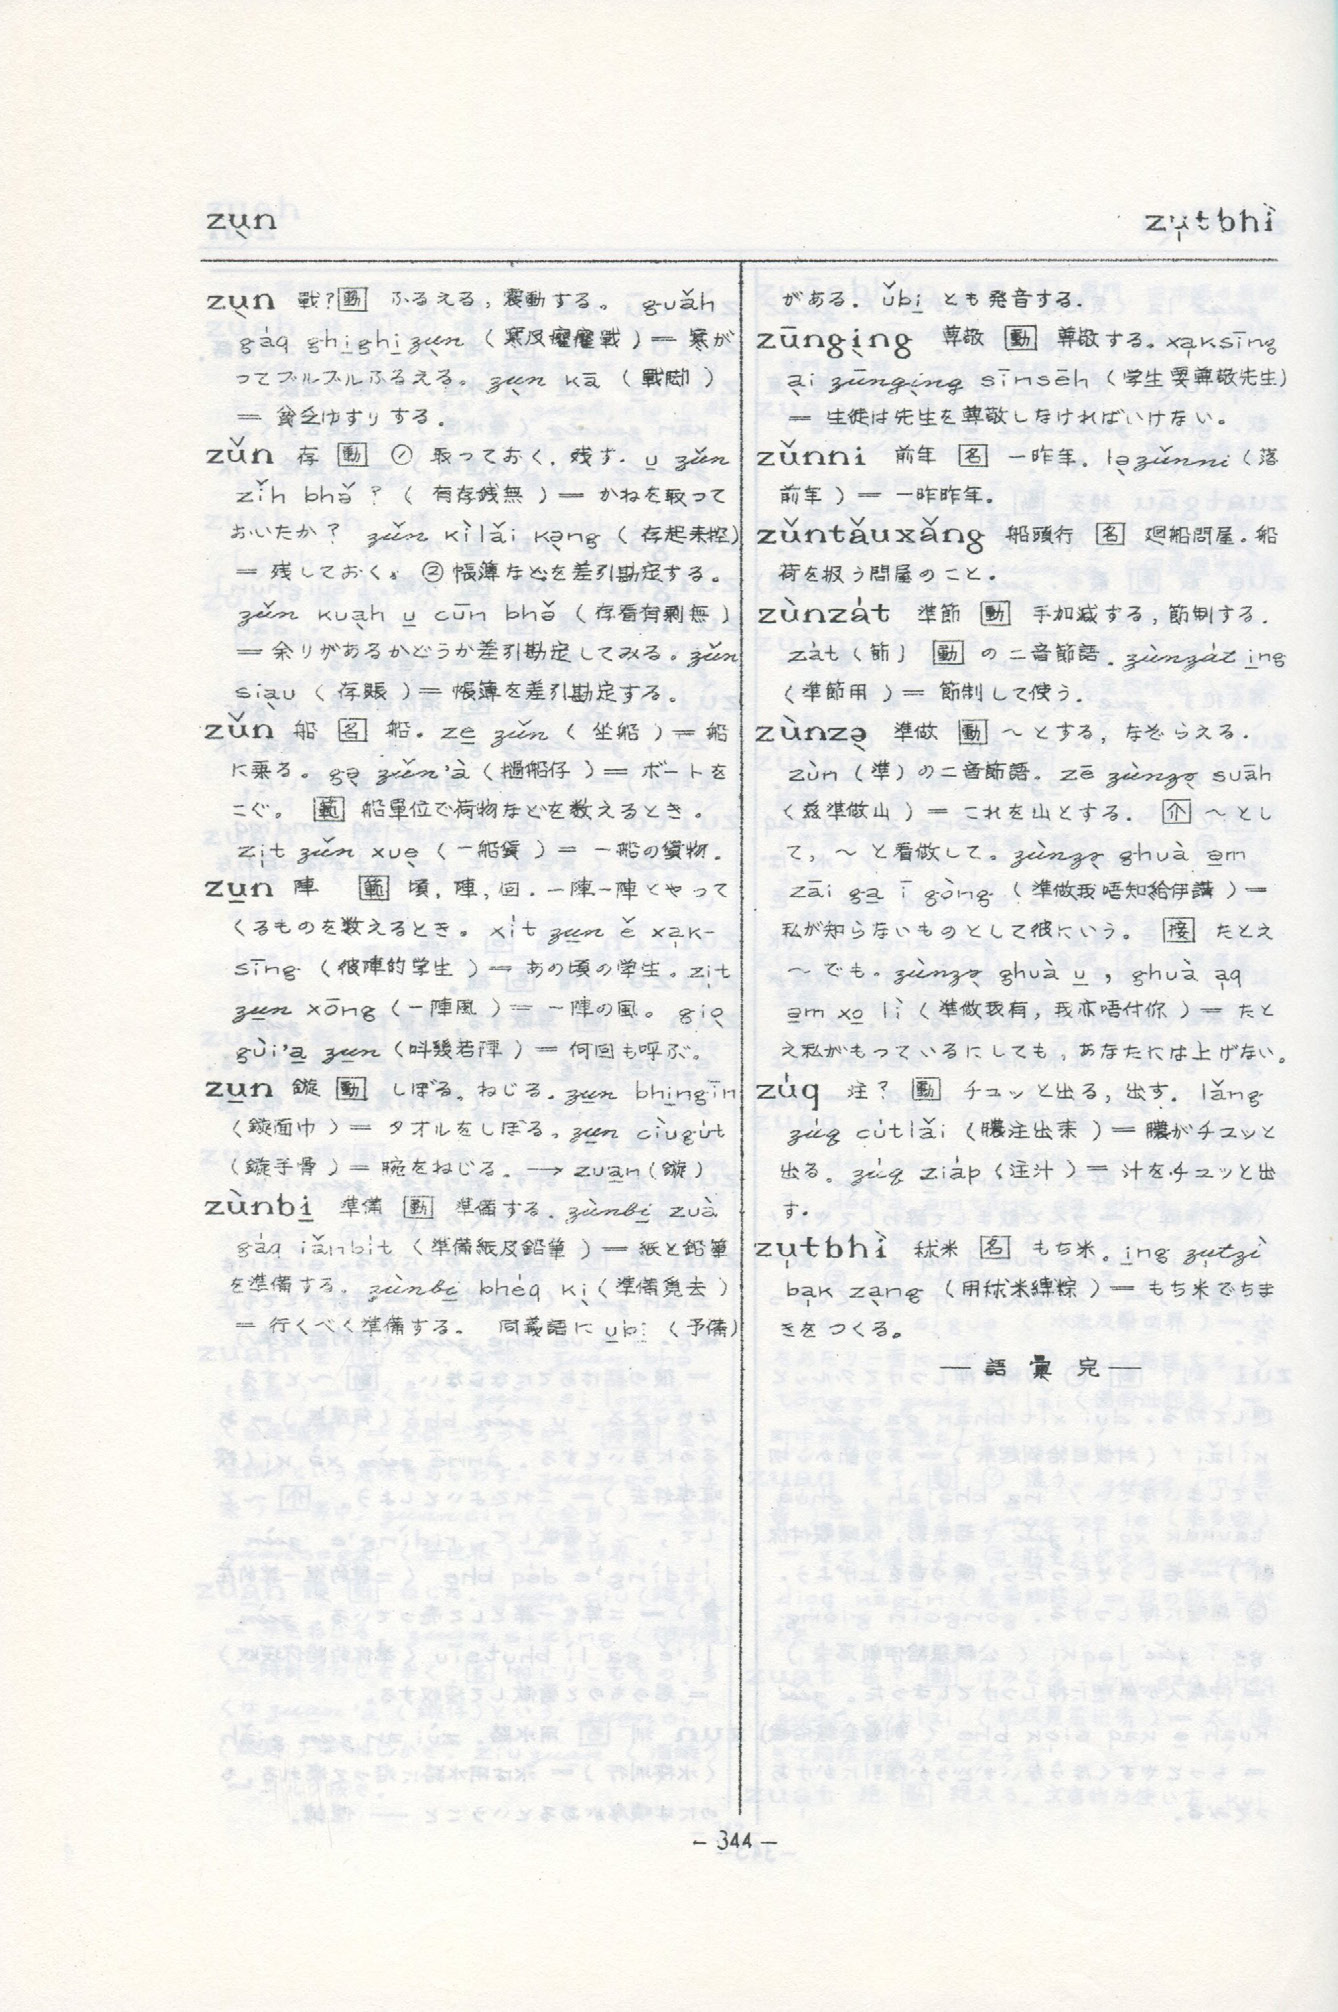 zu̖n
zu̖̍tbhì
zu̖n 戦? 動 ふるえる, 震動する。 guǎh
ga̍q ghi̱ghi̱zu̖n (寒及癯癯戰)= 寒が
ってブルブルふるえる。 zu̖n kā (戰脚)
= 貧乏ゆすりする.
zǔn 存 動 ① 取っておく, 残す. u̱ zǔn
zǐh bhə̌? (有存銭無)= かねを取って
おいたか? zǔn kìlǎi kə̖ng (存起来控)
= 残しておく。 ② 帳簿などを差引勘定する。
zǔn kua̖h u̱ cūn bhə̌ (存看有剰無)
= 余りがあるかどうか差引勘定してみる。zǔn
sia̖u (存賬)= 帳簿を差引勘定する。
zǔn 船 名 船. ze̱ zǔn (坐船)= 船
に乗る。 gə̖ zǔn'à (撾船仔)= ボートを
こぐ。 範 船単位で荷物などを数えるとき.
zi̖t zǔn xue̖ (一船貨)= 一船の貨物.
zu̱n 陣 範 頃, 陣, 回. 一陣一陣とやって
くるものを数えるとき。 xi̍t zu̱n ě xa̖k-
sīng (彼陣的学生)= あの頃の学生. zi̖t
zu̱n xōng (一陣風)= 一陣の風。 giə̖
gùi'a̱ zu̱n (叫幾若陣)= 何回も呼ぶ。
zu̱n 鏇 動 しぼる. ねじる. zu̱n bhi̱ngīn
(鏇面巾)= タオルをしぼる. zu̱n ciùgu̍t
(鏇手骨)= 腕をねじる. → zua̱n (鏇)
zùnbi̱ 準備 動 準備する. zùnbi̱ zuà
ga̍q iǎnbi̍t (準備紙及鉛筆)= 紙と鉛筆
を準備する. zùnbi̱ bhe̍q ki̖ (準備覓去)
= 行くべく準備する。 同義語に u̱bi̱ (予備)
がある. ǔbi̱ とも発音する.
zūngi̖ng 尊敬 動 尊敬する。xa̖ksīng
a̖i zūngi̖ng sīnsēh (学生要尊敬先生)
= 生徒は先生を尊敬しなければいけない。
zǔnni 前年 名 一昨年. lə̖zǔnni (落
前年)= 一昨昨年.
zǔntǎuxǎng 船頭行 名 廻船問屋. 船
荷を扱う問屋のこと.
zùnza̍t 準節 動 手加減する, 節制する.
za̍t (節) 動 の二音節語. zùnza̍t i̱ng
(準節用)= 節制して使う.
zùnzə̖ 準做 動 ～とする, なぞらえる.
zùn (準) の二音節語. zē zùnzə̖ suāh
(玆準做山)= これを山とする. 介 ～とし
て, ～と看做して。 zùnzə̖ ghuà ə̱m
zāi ga̱ ī gòng (準做我唔知給伊講)=
私が知らないものとして彼にいう。 接 たとえ
～でも. zùnzə̖ ghuà u̱, ghuà a̖q
ə̱m xo̱ lì (準做我有, 我亦唔付你)= たと
え私がもっているにしても, あなたには上げない。
zu̍q 注? 動 チュッと出る, 出す. lǎng
zu̍q cu̍tlǎi (膿注出来)= 膿がチュッと
出る。 zu̍q zia̍p (注汁)= 汁をチュッと出
す.
zu̖tbhì 秫米 名 もち米. i̱ng zu̖tzì
ba̖k za̖ng (用秫米縛粽)= もち米でちま
きをつくる。
— 語彙完 —
- 344 -